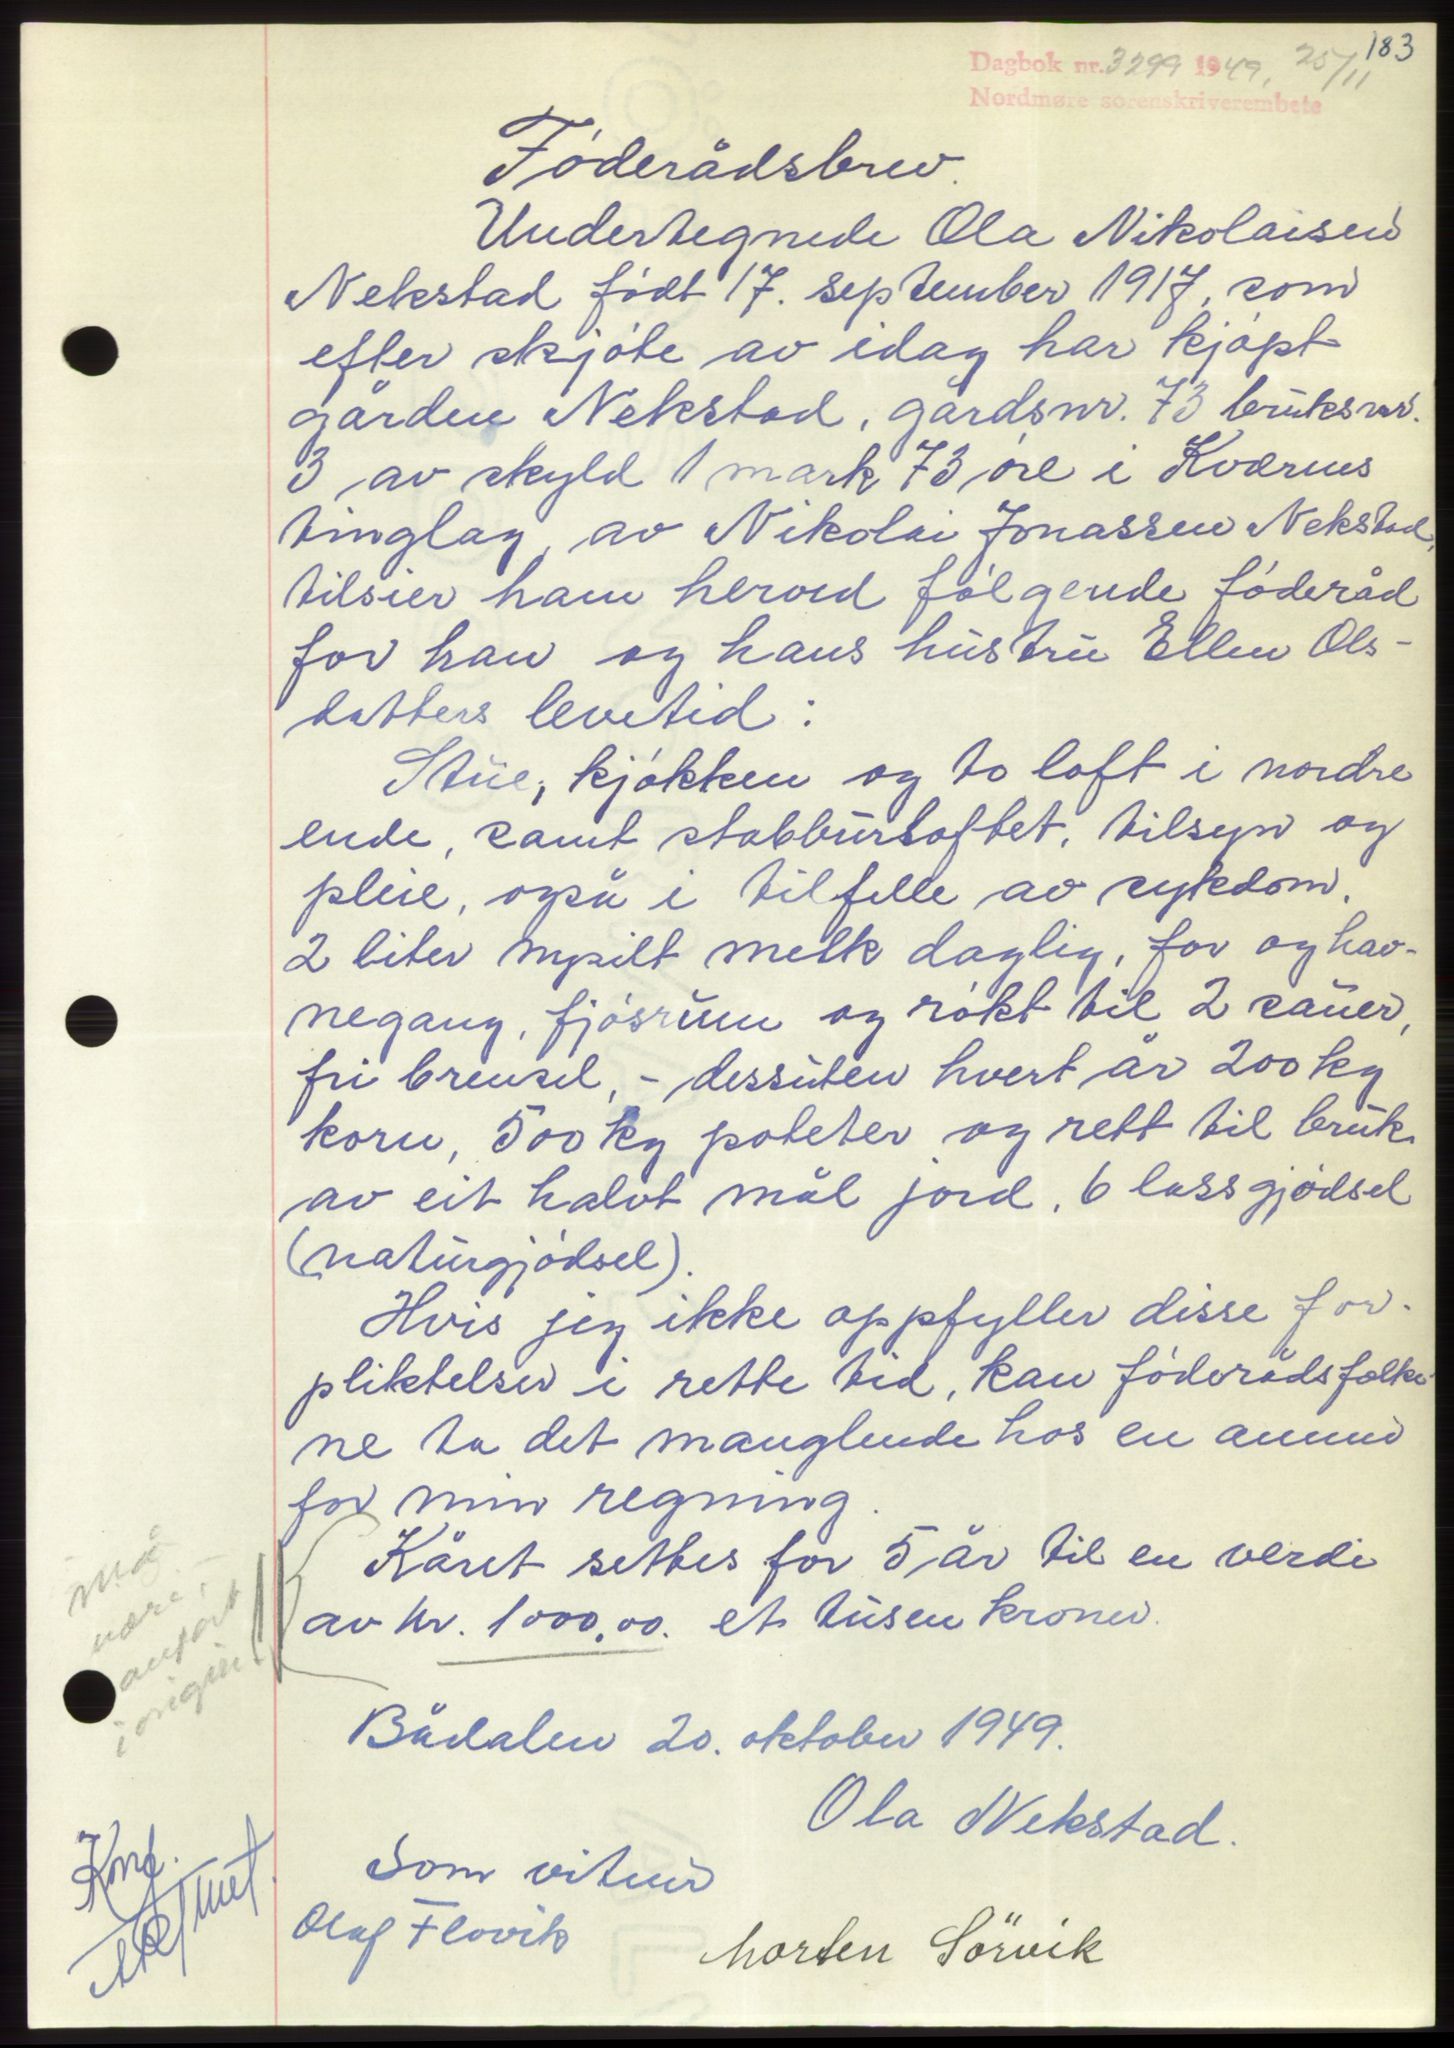 183
Dagbok nr. 3299 1949, 25/11
Nordmøre sorenskriverembete
Føderådsbrev.
Undertegnede Ola Nikolaisen
Nekstad født 17. september 1917, som
efter skjøte av idag har kjøpt
gården Nekstad, gårdsnr. 73 bruksnr.
3 av skyld 1 mark 73 øre i Kværnes
tinglag, av Nikolai Jonassen Nekstad,
tilsier ham herved følgende føderåd
for han og hans hustru Ellen Ols-
datters levetid:
Stue, kjøkken og to loft i nordre
ende, samt stabbursloftet, tilsyn og
pleie, også i tilfelle av sykdom.
2 liter nysilt melk daglig, for og hav-
negang, fjøsrum og røkt til 2 sauer,
fri brensel, - dessuten hvert år 200 kg
korn, 500 kg poteter og rett til bruk
av eit halvt mål jord, 6 lass gjødsel
(naturgjødsel).
Hvis jeg ikke oppfyller disse for-
pliktelser i rette tid, kan føderådsfolke-
ne ta det manglende hos en annen
for min regning.
Kåret settes for 5 år til en verdi
av kr. 1000,00. et tusen kroner.
Må
være
anført
i origin.
Bådalen 20. oktober 1949.
Ola Nekstad.
Som vitner
Olaf Flovik
Morten Sörvik
Konf.